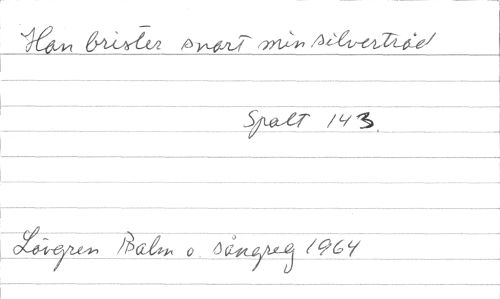 Han brister snart min silvertråd
Spalt 143.
Lövgren Psalm o. sångreg 1964